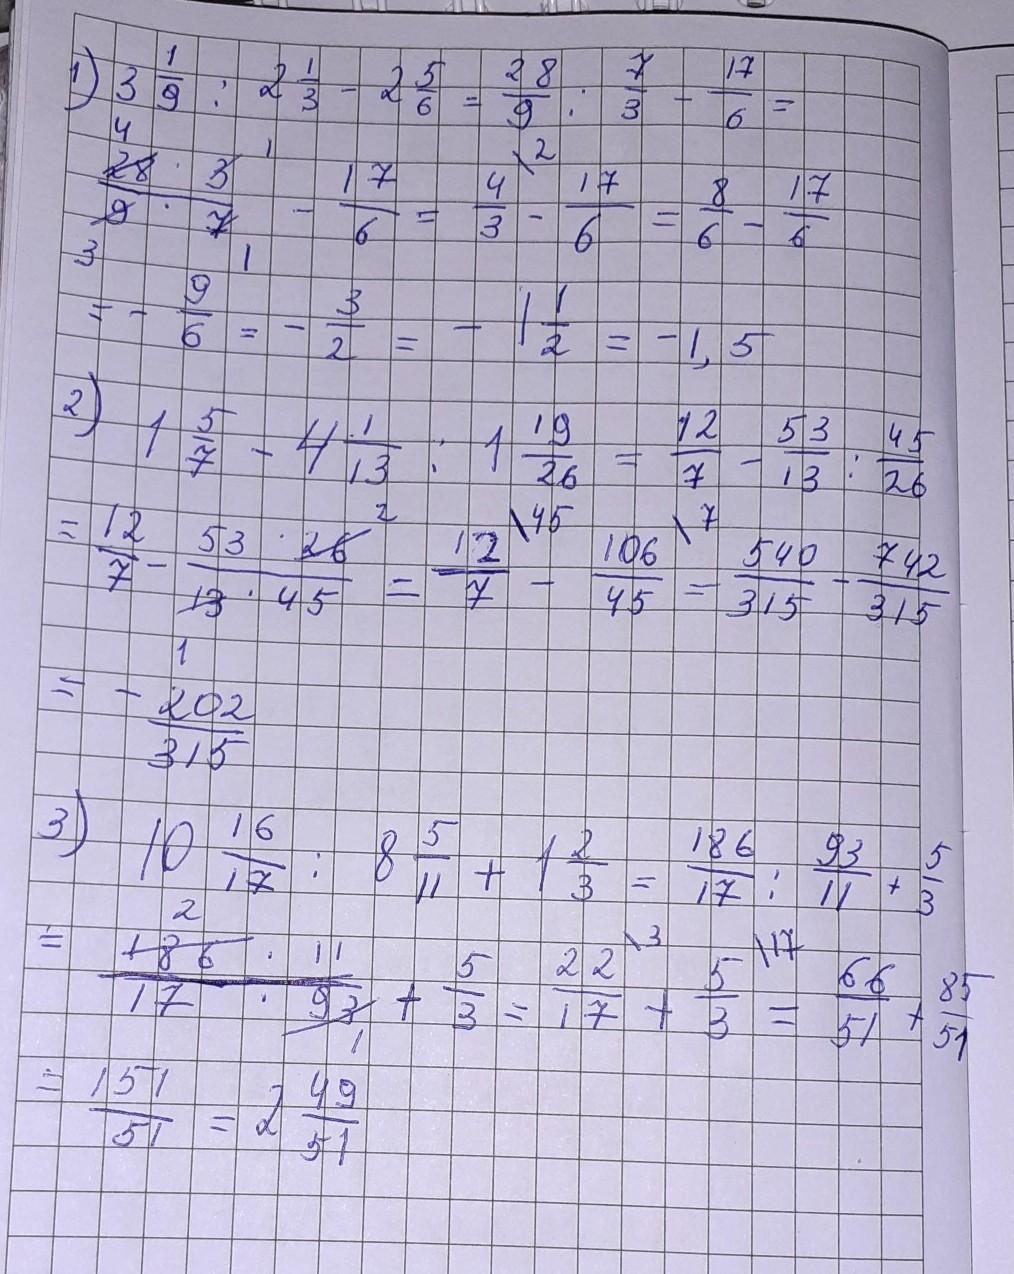 1) 3 1/9 : 2 1/3 - 2 5/6 = 28/9 : 7/3 - 17/6 =
(28 · 3)/(9 · 7) - 17/6 = 4/3 \2 - 17/6 = 8/6 - 17/6
= - 9/6 = - 3/2 = - 1 1/2 = -1,5
2) 1 5/7 - 4 1/13 : 1 19/26 = 12/7 - 53/13 : 45/26
= 12/7 - (53 · 26)/(13 · 45) = 12/7 \45 - 106/45 \7 = 540/315 - 742/315
= - 202/315
3) 10 16/17 : 8 5/11 + 1 2/3 = 186/17 : 93/11 + 5/3
= (186 · 11)/(17 · 93) + 5/3 = 22/17 \3 + 5/3 \17 = 66/51 + 85/51
= 151/51 = 2 49/51